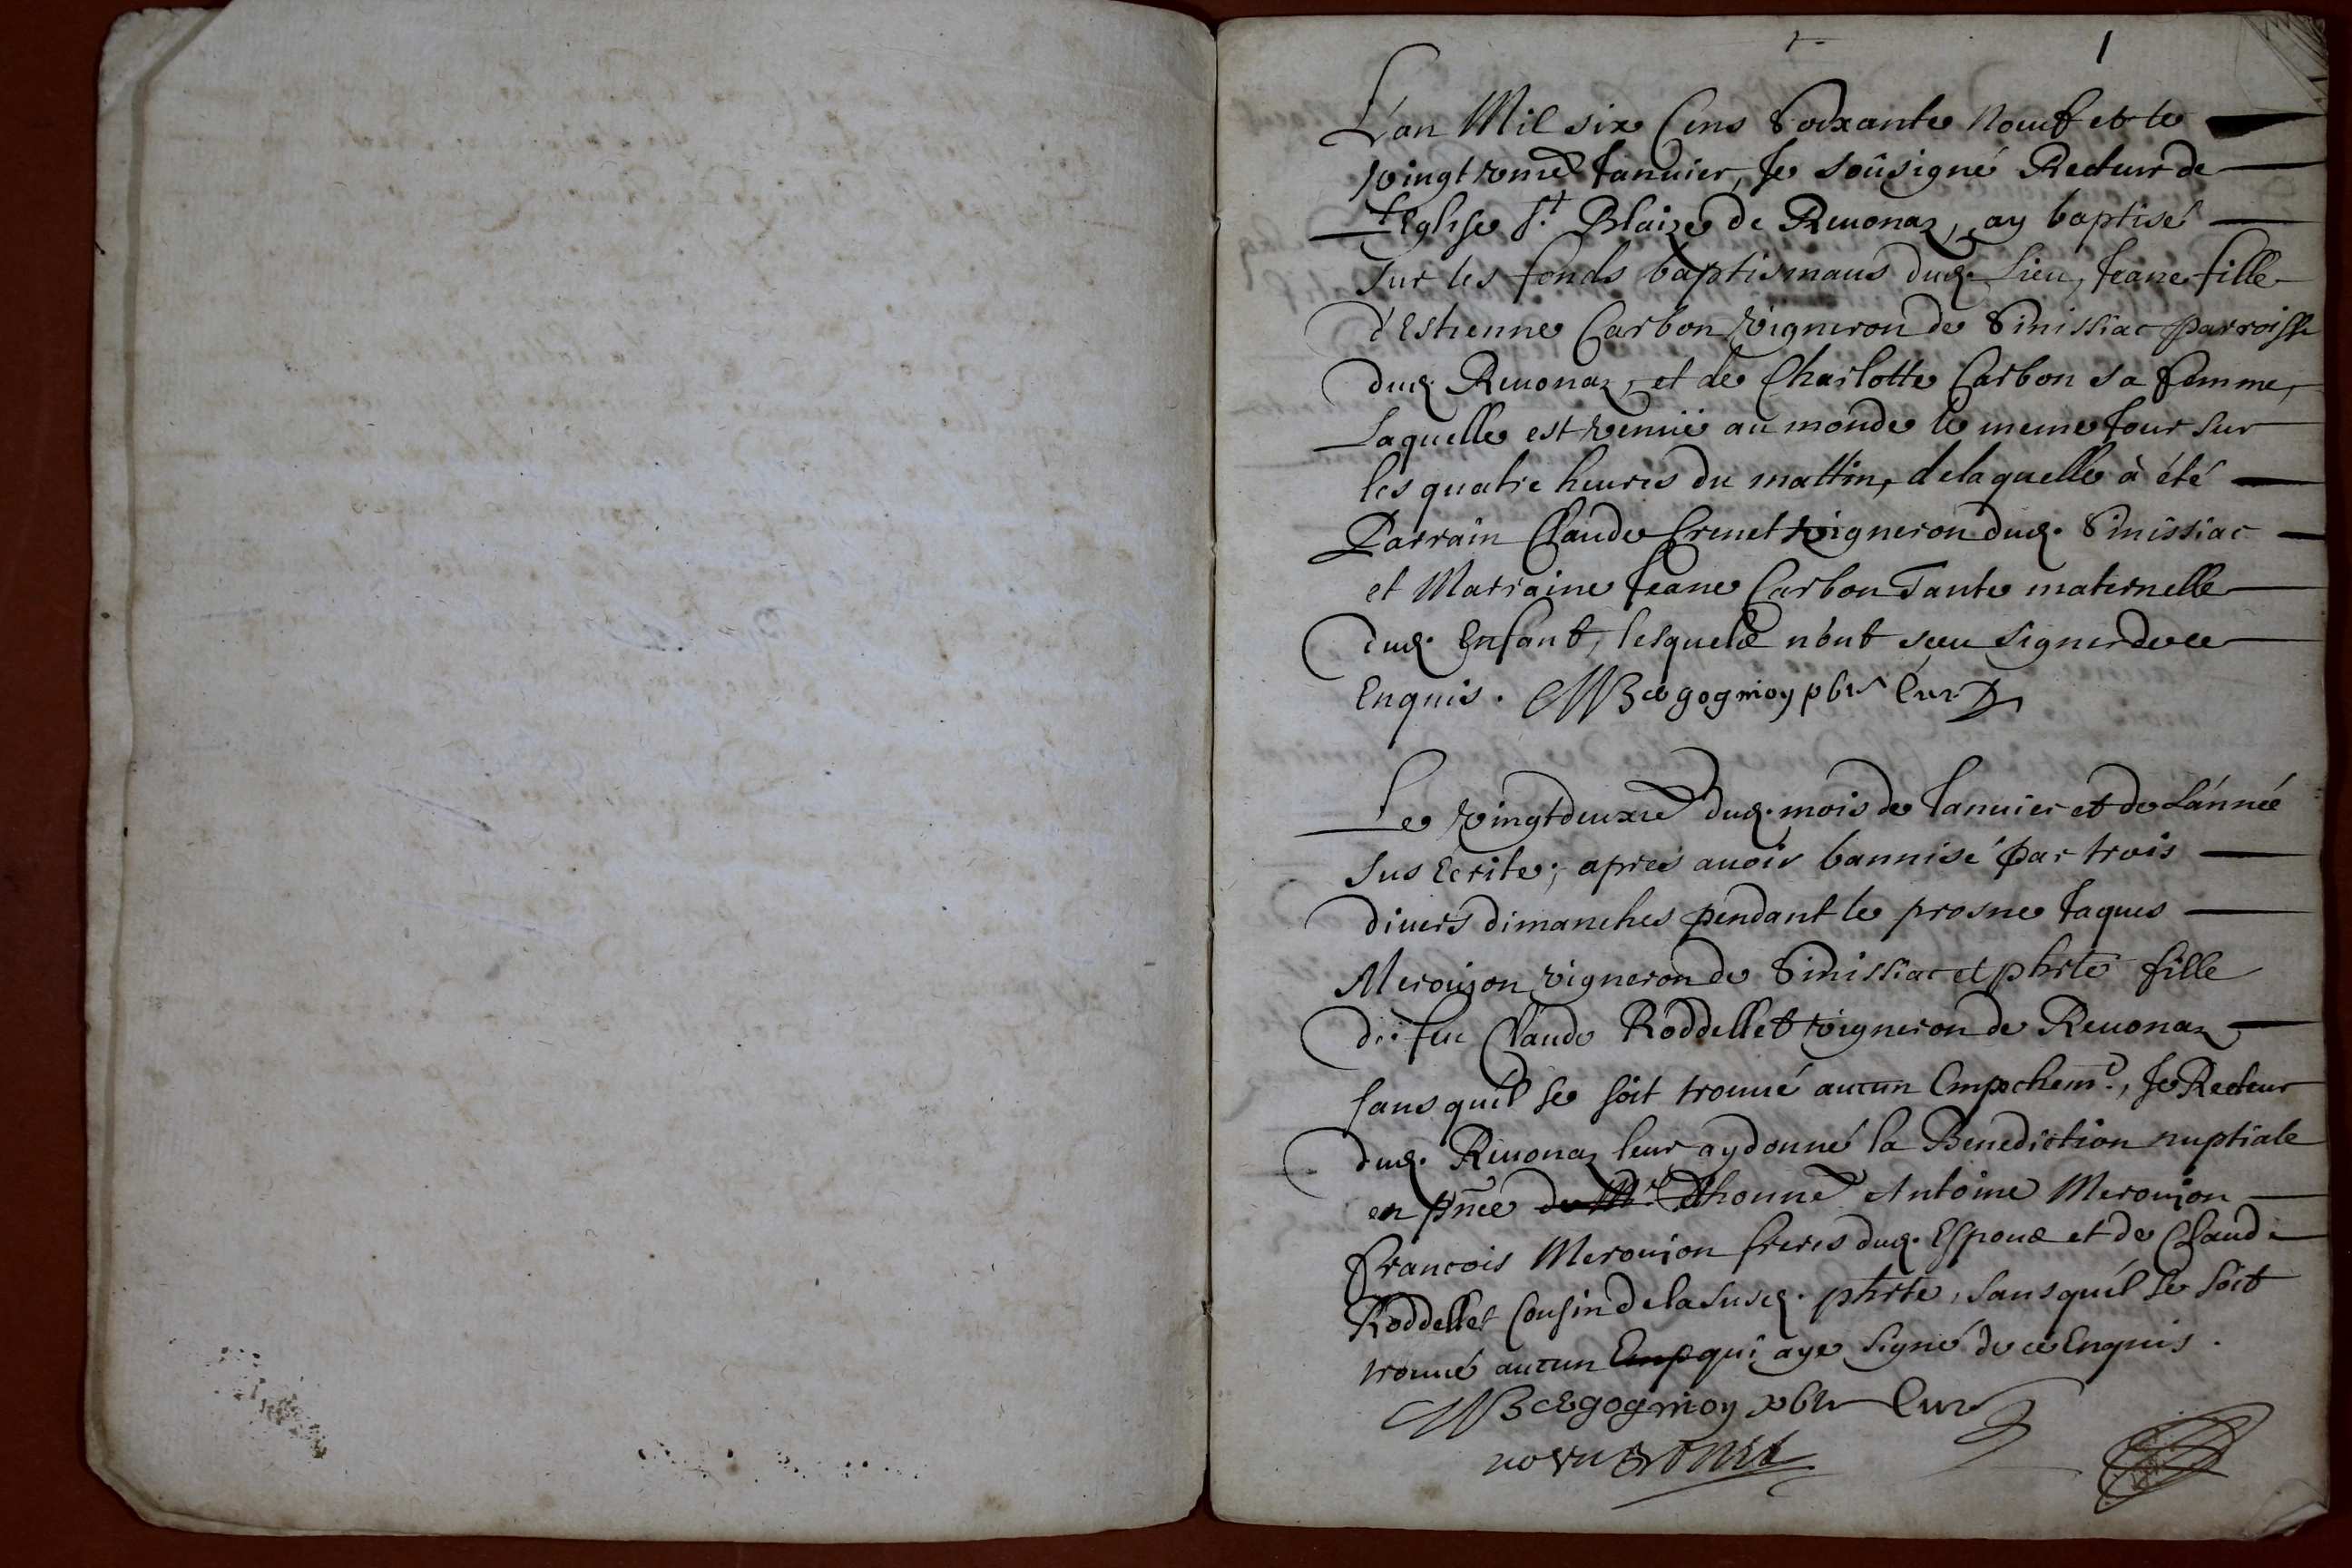 1
L'an Mil six Cens Soixante Noeuf et le
vingt vnie Januier, Je soûsigné Recteur de
l'Eglise St. Blaize de Reuonaz, ay baptisé
sur les fonds baptismaus dud. Lieu, Jeane fille
d'Estienne Carbon vigneron de Simissiac parroisse
dud. Reuonaz, et de Charlotte Carbon sa femme,
Laquelle est venuë au monde le meme Jour sur
les quatre heures du mattin, de laquelle à été
Parrain Claude Crenet vigneron dud. Simissiac
et Marraine Jeane Carbon Tante maternelle
dud. Enfant, lesquels n'ont sceu signer de ce
Enquis. pbr Curé
Le vingtdeuxie dud. mois de Januier et de L'année
sus Ecrite; apres auoir bannisé par trois
diuers dimanches pendant le prosne Jaques
Meroujon vigneron de Simissiac et phrte fille
du feu Claude Roddellet vigneron de Reuonaz
sans qu'il se soit trouué aucun Empechemt., Je Recteur
dud. Reuonaz leur ay donné la Benediction nuptiale
en pnce de Mr d'honne Antoine Meroujon
francois Meroujon freres dud. Espous et de Claude
Roddellet Cousin de la susd. phrte, sans qu'il se soit
trouué aucun Emp qui aye signé de ce Enquis.
pbr Curé